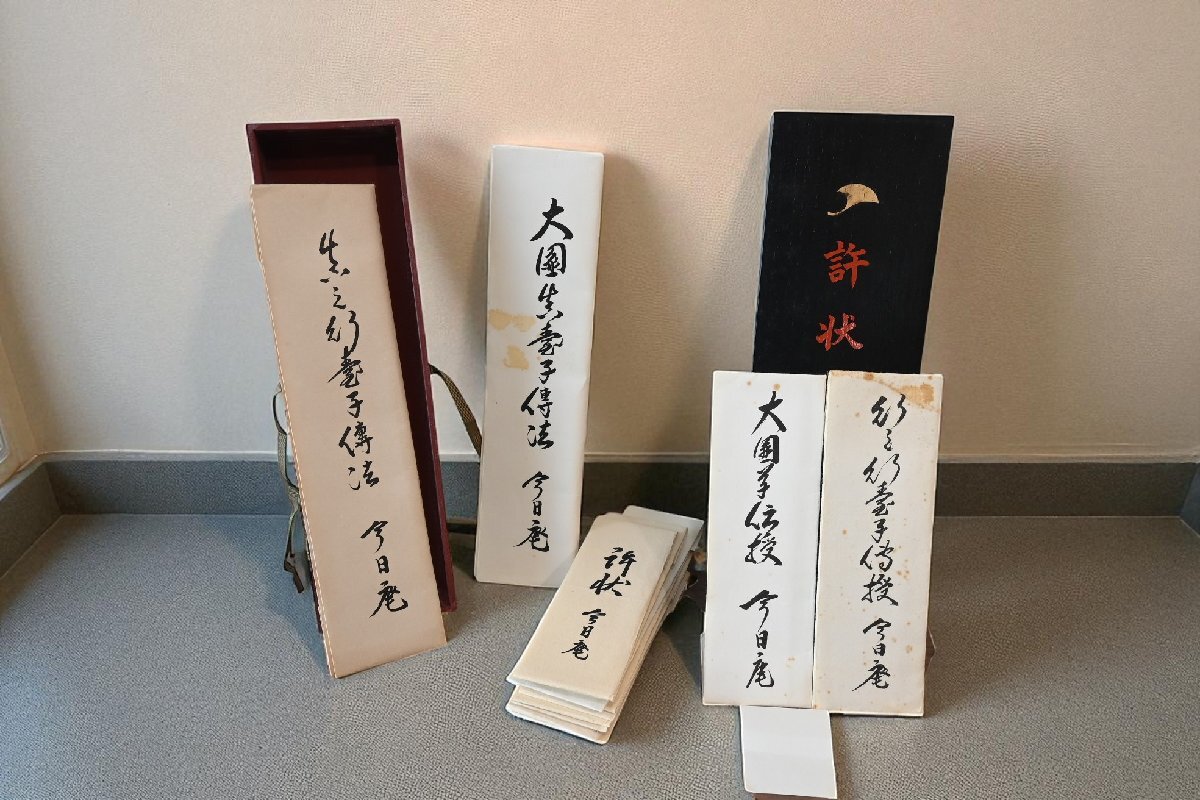 真之行臺子傳法 今日庵
大圓真臺子傳法 今日庵
許状 今日庵
許状
大圓草伝授 今日庵
行之行臺子傳授 今日庵